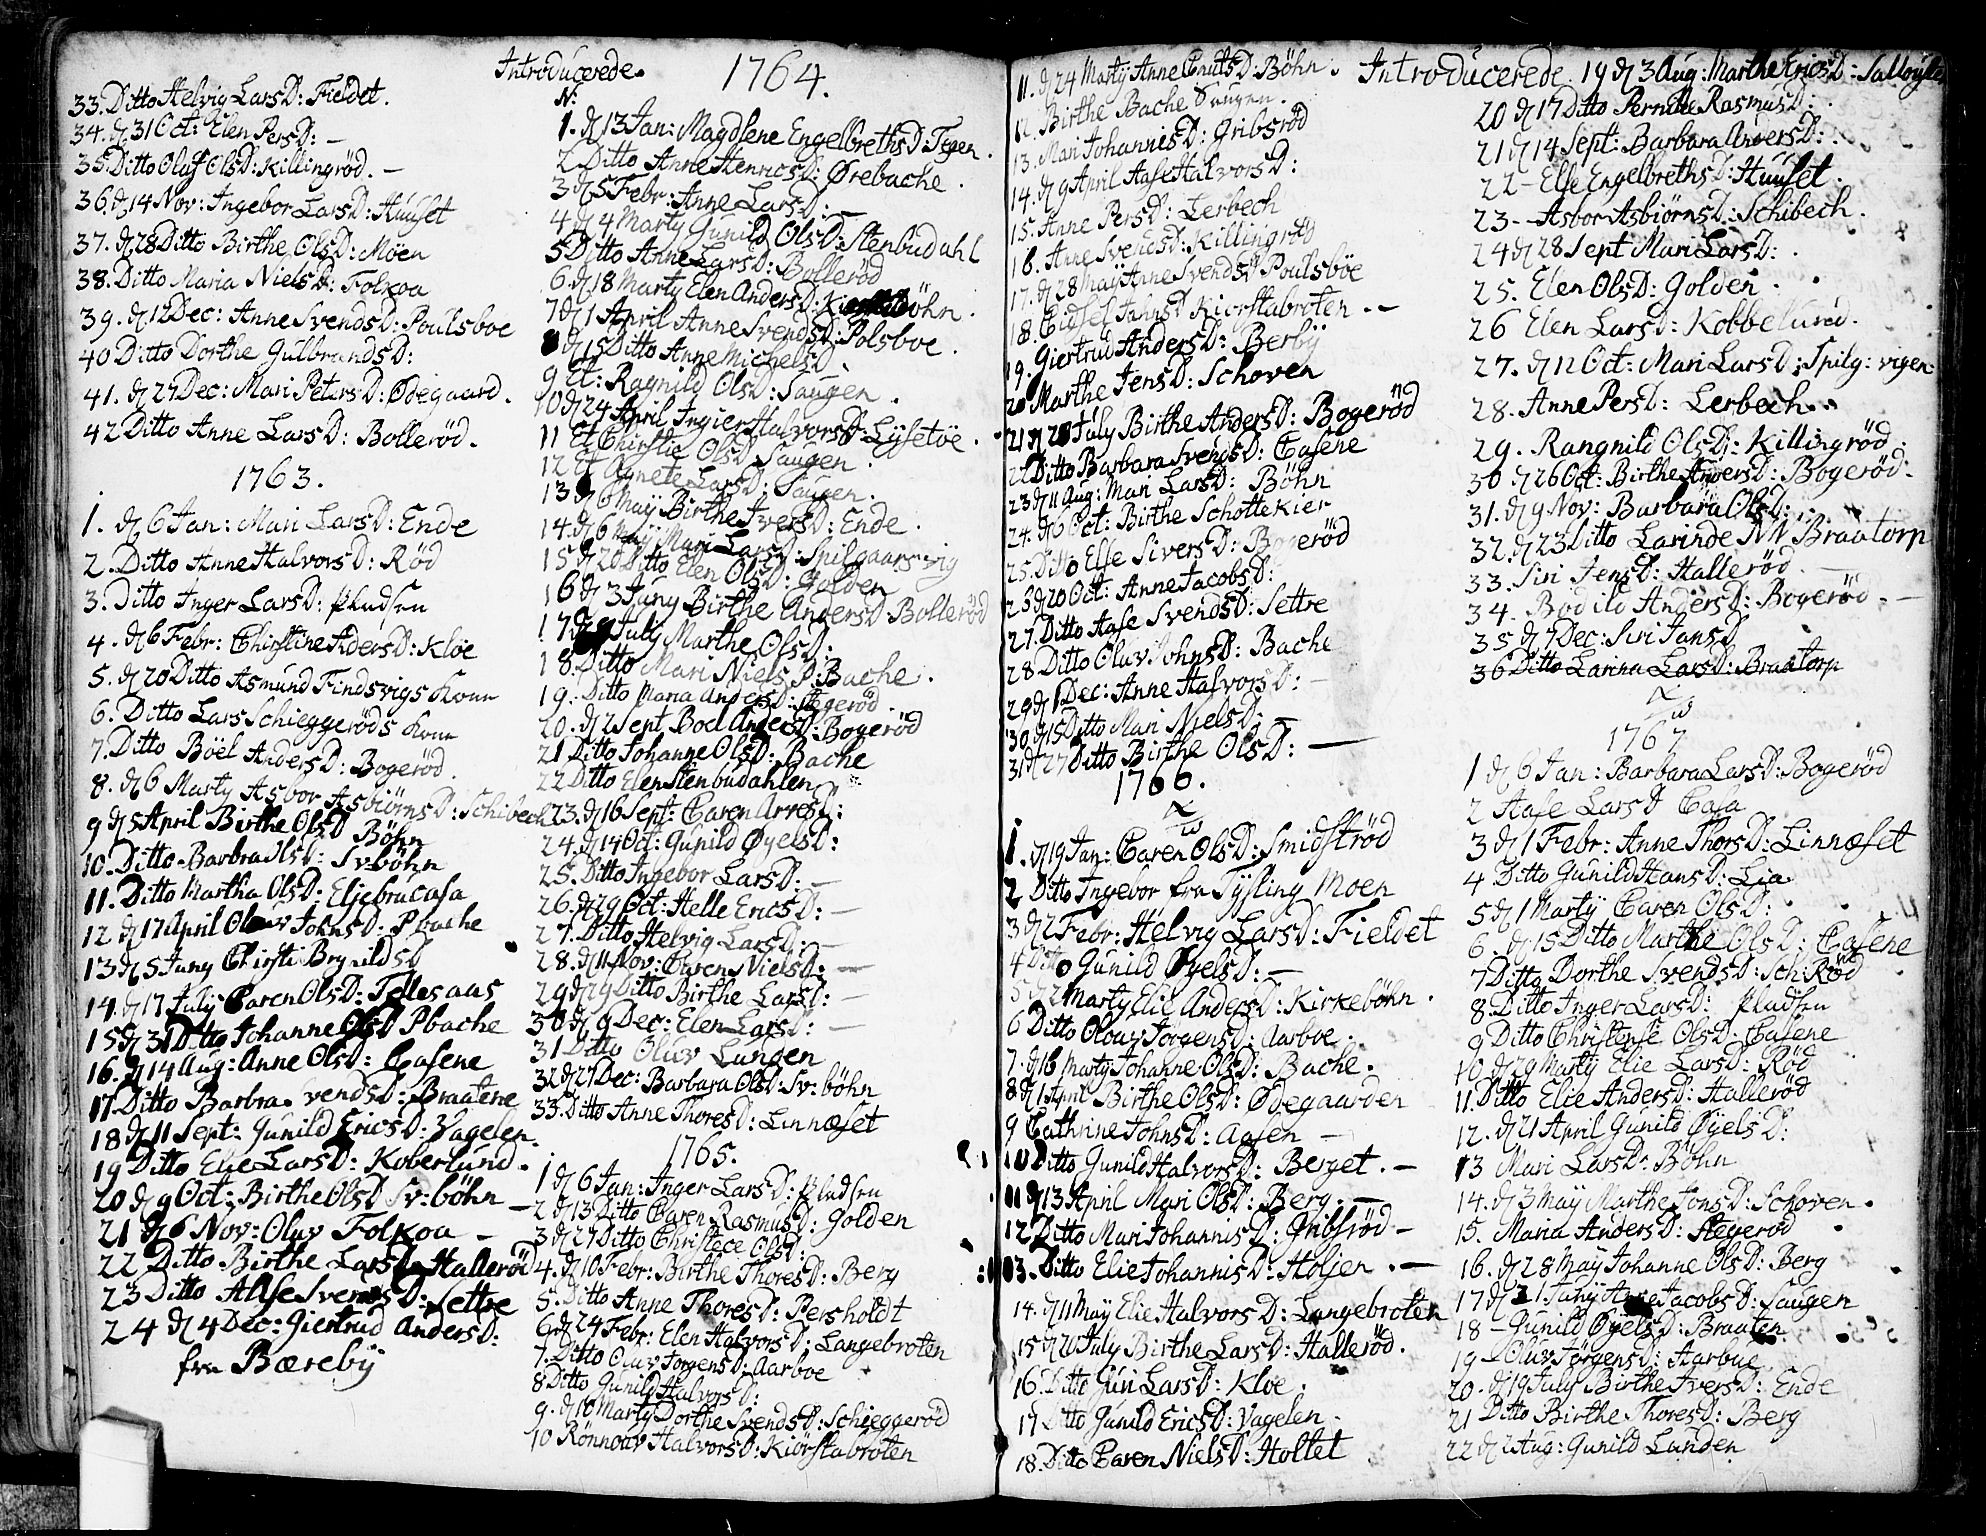 Introducerede.
33. Ditto Helvig LarsD: Fieldet.
34. d 31 Oct: Elen PersD: —
35. Ditto Oluf OlsD: Killingröd. —
36. d 14 Nov: Ingebor LarsD: Huuset
37. d 28 Ditto Birthe OlsD: Möen
38. Ditto Maria NielsD: Folkoa
39. d 12 Dec: Anne SvendsD: Poulsboe
40 Ditto Dorthe GulbrandsD:
41. d 27 Dec: Mari PetersD: Ødegaard.
42 Ditto Anne LarsD: Bolleröd.
1763.
1. d 6 Jan: Mari LarsD: Ende
2. Ditto Anne HalvorsD: Röd
3. Ditto Inger LarsD: Pladsen
4. d 6 Febr: Chirstine AdersD: Klöe
5. d 20 Ditto Asmund Findsvigs Kone
6. Ditto Lars Schieggeröds Kone
7. Ditto Böel AndersD: Bogeröd.
8. d 6 Marty Asbor AsbiörnsD: Schibech
9 d 5 April Birthe OlsD Böhn
10. Ditto Barbra OlsD: Sv böhn
11. Ditto Martha OlsD: Eljebracasa
12 d 17 April Oluv JohnsD: Pbache
13 d 5 Juny Chirsti BrynildsD
14. d 17 July Caren OlsD: Tellesaas
15 d 31 Ditto Johanne OlsD Pbache
16. d 14 Aug: Anne OlsD: Casene
17 Ditto Barbra SvendsD: Braatene
18 d 11 Sept: Gunild EricsD: Vagelen.
19 Ditto Elie LarsD: Koberlund.
20 d 9 Oct: Birthe OlsD Sv: böhn
21 d 6 Nov: Oluv Folkoa —
22 Ditto Birthe LarsD: Halleröd
23 Ditto SvendsD: Settre
24 d 4 Dec: Giertrud AndersD:
fra Bæreby
1764.
N:
1. d 13 Jan: Magdlene EngelbrethsD: Tegen.
2 Ditto Anne HenricsD: Ørebache.
3 d 5 Febr: Anne LarsD: —
4 d 4 Marty Gunild OlsD: Stenbudahl
5 Ditto Anne LarsD: Bolleröd
6. d 18 Marty Elen AndersD: böhn.
7 d 1 April Anne SvendsD: Polsboe.
8 d 15 Ditto Anne MichelsD
9 Et: Ragnild OlsD: Saugen.
10 d 24 April Ingier HalvorsD: Lysetöe.
11 Et Chirstie OlsD Saugen.
12 Et Agnete LarsD: Saugen.
13 d 6 May Birthe IversD: Ende.
14. d 6 May Mari LarsD: Spilgaarsvig
15 d 20 Ditto Elen OlsD: Golden
16 d 3 Juny Birthe AndersD Bolleröd
17 d July Marthe OlsD:
18. Ditto Mari NielsD: Bache.
19. Ditto Maria AndersD: Hegeröd
20. d 2 Sept Boel AndersD: Bogeröd
21 Ditto Johanne OlsD: Bache
22 Ditto Elen Stenbudahlen
23. d 16 Sept: Caren ArnesD:
24. d 14 Oct: Gunild ØyelsD:
25. Ditto Ingebor LarsD: —
26. d 29 Oct: Helle EricsD: —
27. Ditto Helvig LarsD: —
28. d 11 Nov: Caren NielsD: —
29 d 29 Ditto Birthe LarsD: —
30 d 9 Dec: Elen LarsD: —
31 Ditto Oluv Lunden
32 d 27 Dec: Barbara OlsD: Sv: böhn
33. Ditto Anne ThoresD: Linnæset
1765.
1 d 6 Jan: Inger LarsD: Pladsen
2 d 13 Ditto Caren RasmusD: Golden
3 d 27 Ditto Christece OlsD:
4. d 10 Febr: Birthe ThoresD: Berg
5. Ditto Anne ThoresD: Persholdt
6 d 24 Febr: Elen HalvorsD: Langebroten
7. Ditto Oluv JorgensD: Aarboe
8 Ditto Gunild HalvorsD:
9. d 10 Marty Dorthe SvendsD: Schieggeröd
10 Rönnoav HalvorsD: Kiörstabroten
11. d 24 Marty Anne CnutsD: Böhn.
12. Birthe Bache Saugen.
13. Mari JohannisD: Gribsröd
14. d 9 April Aase HalvorsD:
15. Anne PersD: Lerbech
16. Anne SvendsD: Killingröd
17. d 28 May Anne SvendsD Poulsböe
18. JahnsD Kiorstabroten. —
19. Giertrud AndersD: Berby
20 Marthe JensD: Schoven
21 d 28 July Birthe AndersD: Bogeröd
22 Ditto Barbara SvendsD: Casene
23 d 11 Aug: Mari LarsD: Böhn
24. d 6 Oct: Birthe Schottekier
25. Ditto Else SiversD: Bogeröd
26 d 20 Oct: Anne JacobsD:
27. Ditto Aase SvendsD: Settre
28 Ditto Oluv JohnsD: Bache
29 d 1 Dec: Anne HalvorsD: —
30 d 15 Ditto Mari NielsD: —
31 d 27 Ditto Birthe OlsD: —
1766.
1. d 19 Jan: Caren OlsD: Smidströd
2 Ditto Ingebor fra Tysling Moen
3 d 2 Febr: Helvig LarsD: Fieldet
4 Ditto Gunild ØyelsD: —
5 d 2 Marty Elie AndersD: Kirkeböhn.
6 Ditto Oloav JorgensD: Aarboe.
7. d 16 Marty Johanne OlsD: Bache.
8 d 1 April Birthe OlsD: Ødegaarden
9 Cathrine JohnsD: Aasen —
10 Ditto Gunild HalvorsD: Berget. —
11 d 13 April Mari OlsD: Berg. —
12 Ditto Mari JohannisD: Gribsröd —
13. Ditto Elie JohannisD: Holjen. —
14. d 11 May Elie HalvorsD: Langebroten
15 d 20 July Birthe LarsD: Halleröd.
16. Ditto Guri LarsD: Klöe.
17 Ditto Gunild EricsD: Vagelen.
18. Ditto Caren NielsD: Holtet
Introducerede.
19 d 3 Aug: Marthe EricsD: Salloyle
20 d 17 Ditto Pernille RasmusD:
21 d 14 Sept: Barbara AndersD:
22 — Else EngelbrethsD: Huuset.
23. — Asbor AsbiörnsD: Schibech.
24 d 28 Sept Mari LarsD:
25. Elen OlsD: Golden
26 Elen LarsD: Kobbelund.
27. d 12 Oct: Mari LarsD: Spilg: vigen
28. Anne PersD: Lerbech.
29. Rangnild OlsD: Killingröd.
30 d 26 Oct: Birthe AndersD: Bogeröd.
31. d 9 Nov: Barbara OlsD:
32. d 23 Ditto Larinde NN Braatorp
33. Siri JensD: Halleröd. —
34. Bodild AndersD: Bogeröd. —
35 d 7 Dec: Siri JansD
36 Ditto Larina LarsD: Braatorp
1767
1 d 6 Jan: Barbara LarsD: Bogeröd
2 Aase LarsD Casa
3 d 1 Febr: Anne ThorsD: Linnæset
4 Ditto Gunild HansD: Lia
5 d 1 Marty Caren OlsD:
6. d 15 Ditto Marthe OlsD: Casene
7 Ditto Dorthe SvendsD: Sch: Röd
8. Ditto Inger LarsD: Pladsen
9 Ditto Christense OlsD: Casene
10 d 29 Marty Elie LarsD: Röd
11. Ditto Elie AndersD: Halleröd
12. d 21 April Gunild ØyelsD:
13 Mari LarsD: Böhn
14. d 3 May Marthe JonsD: Schoven.
15. Maria AndersD: Hegeröd
16. d 28 May Johanne OlsD: Berg
17 d 21 Juny Anne JacobsD: Saugen
18 — Gunild ØyelsD: Braaten
19 — Oluv JörgensD: Aarboe
20. d 19 July Birthe IversD: Ende
21 Ditto Birthe ThoresD: Berg
22 d 2 Aug: Gunild Lunden